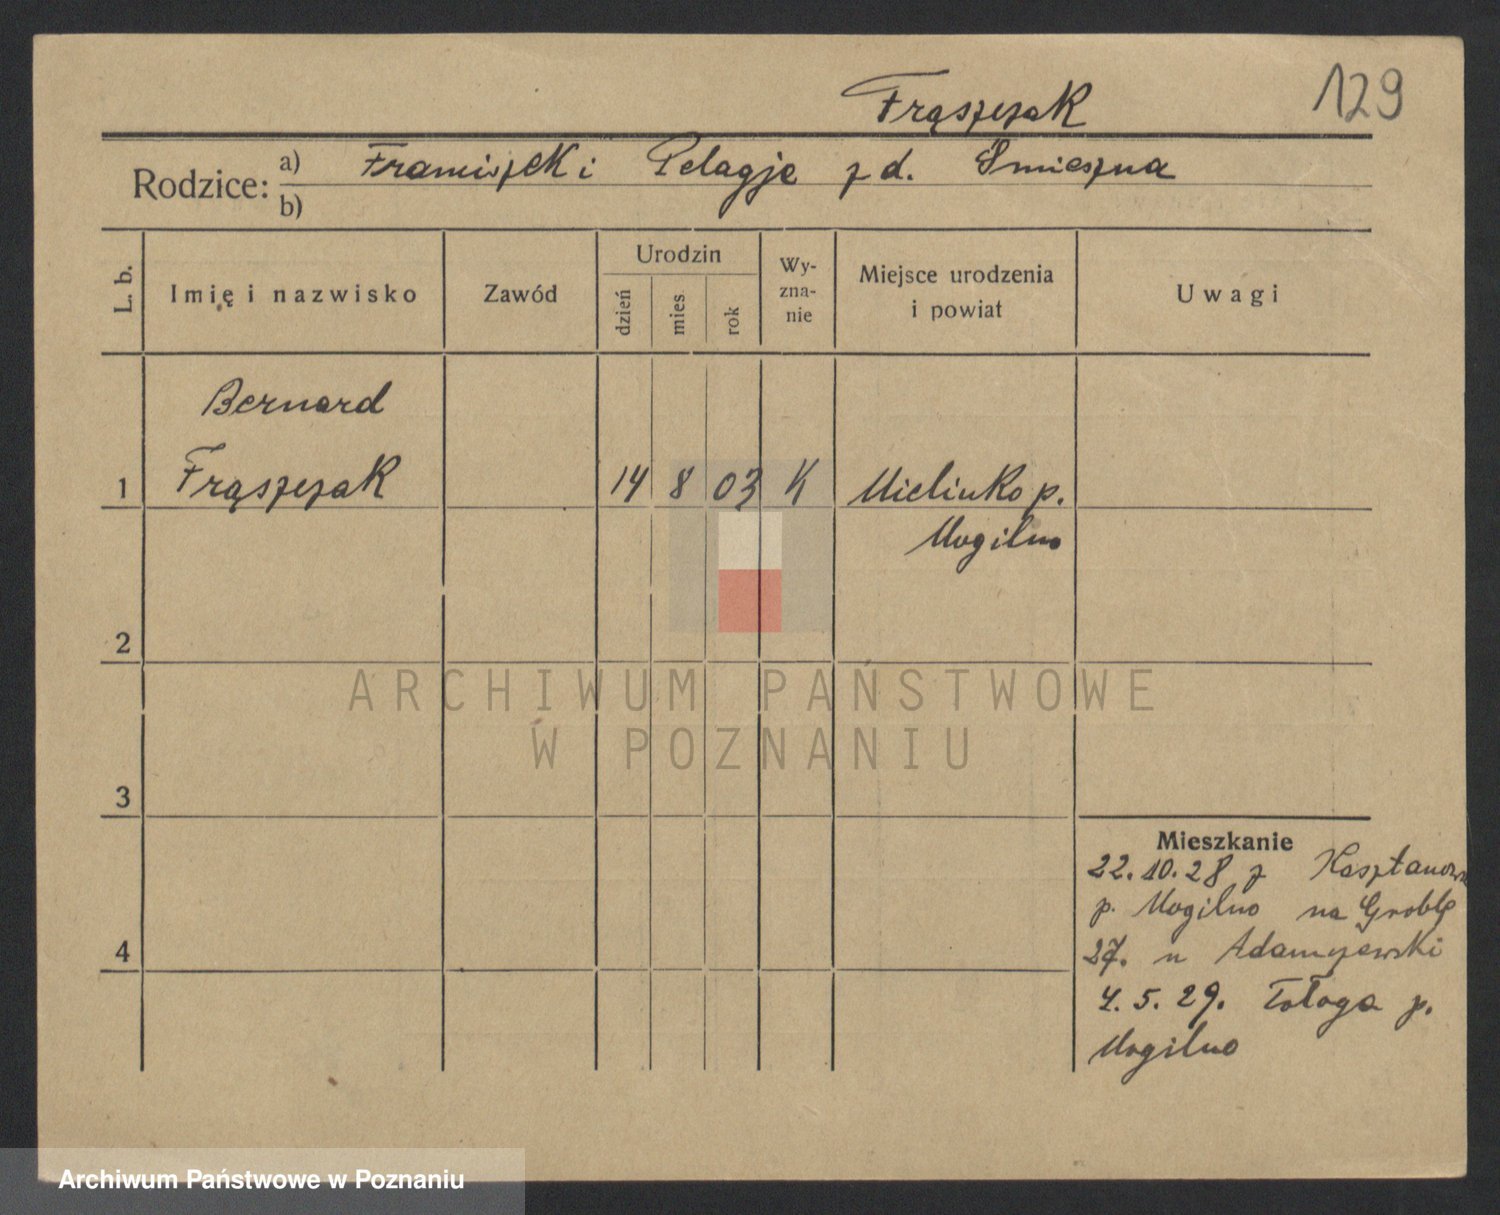 129
Frąszczak
Rodzice: a) Franciszek i Pelagje z d. Śmieszna
b)
L. b.
Imię i nazwisko
Zawód
Urodzin
dzień
mies.
rok
Wy-
zna-
nie
Miejsce urodzenia
i powiat
Uwagi
Bernard
1 Frąszczak 14 8 03 K Mielinko p.
Mogilno
2
3
4
Mieszkanie
22.10.28 z
p. Mogilno na Groblę
27. u Adamczewski
4.5.29. p.
Mogilno
ARCHIWUM PAŃSTWOWE
W POZNANIU
Archiwum Państwowe w Poznaniu